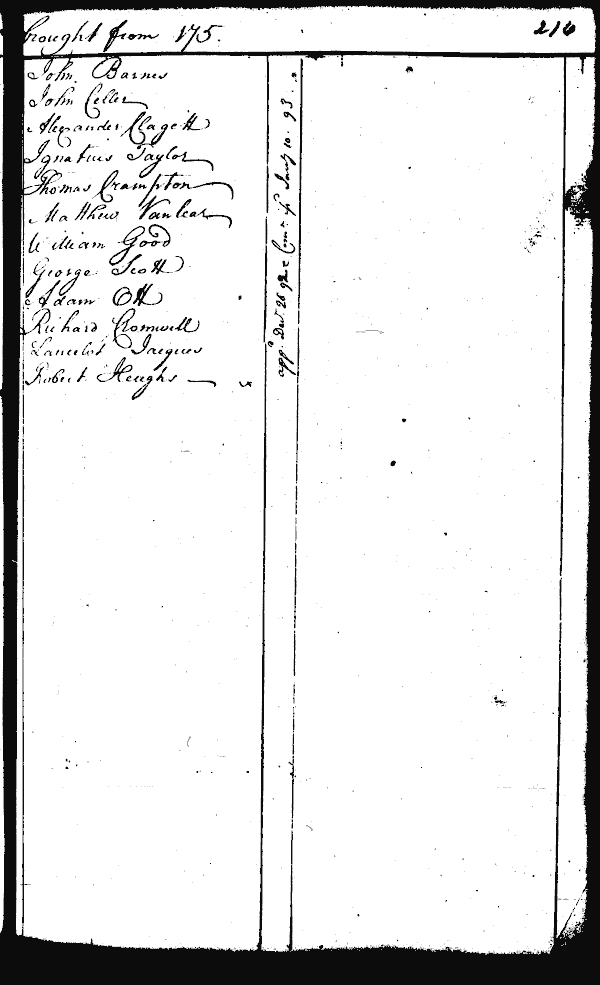 brought from 175.
216
John Barnes
John Celler
Alexander Clagett
Ignatius Taylor
Thomas Crampton
Matthew Vanlear
William Good
George Scott
Adam Ott
Richard Cromwell
Lancelot Jacques
Robert Heughs
app.d Dec.r 26 92 & Com.n iss Jan.y 10. 93